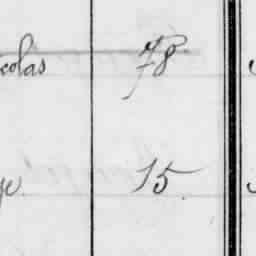 colas 78
ge 15